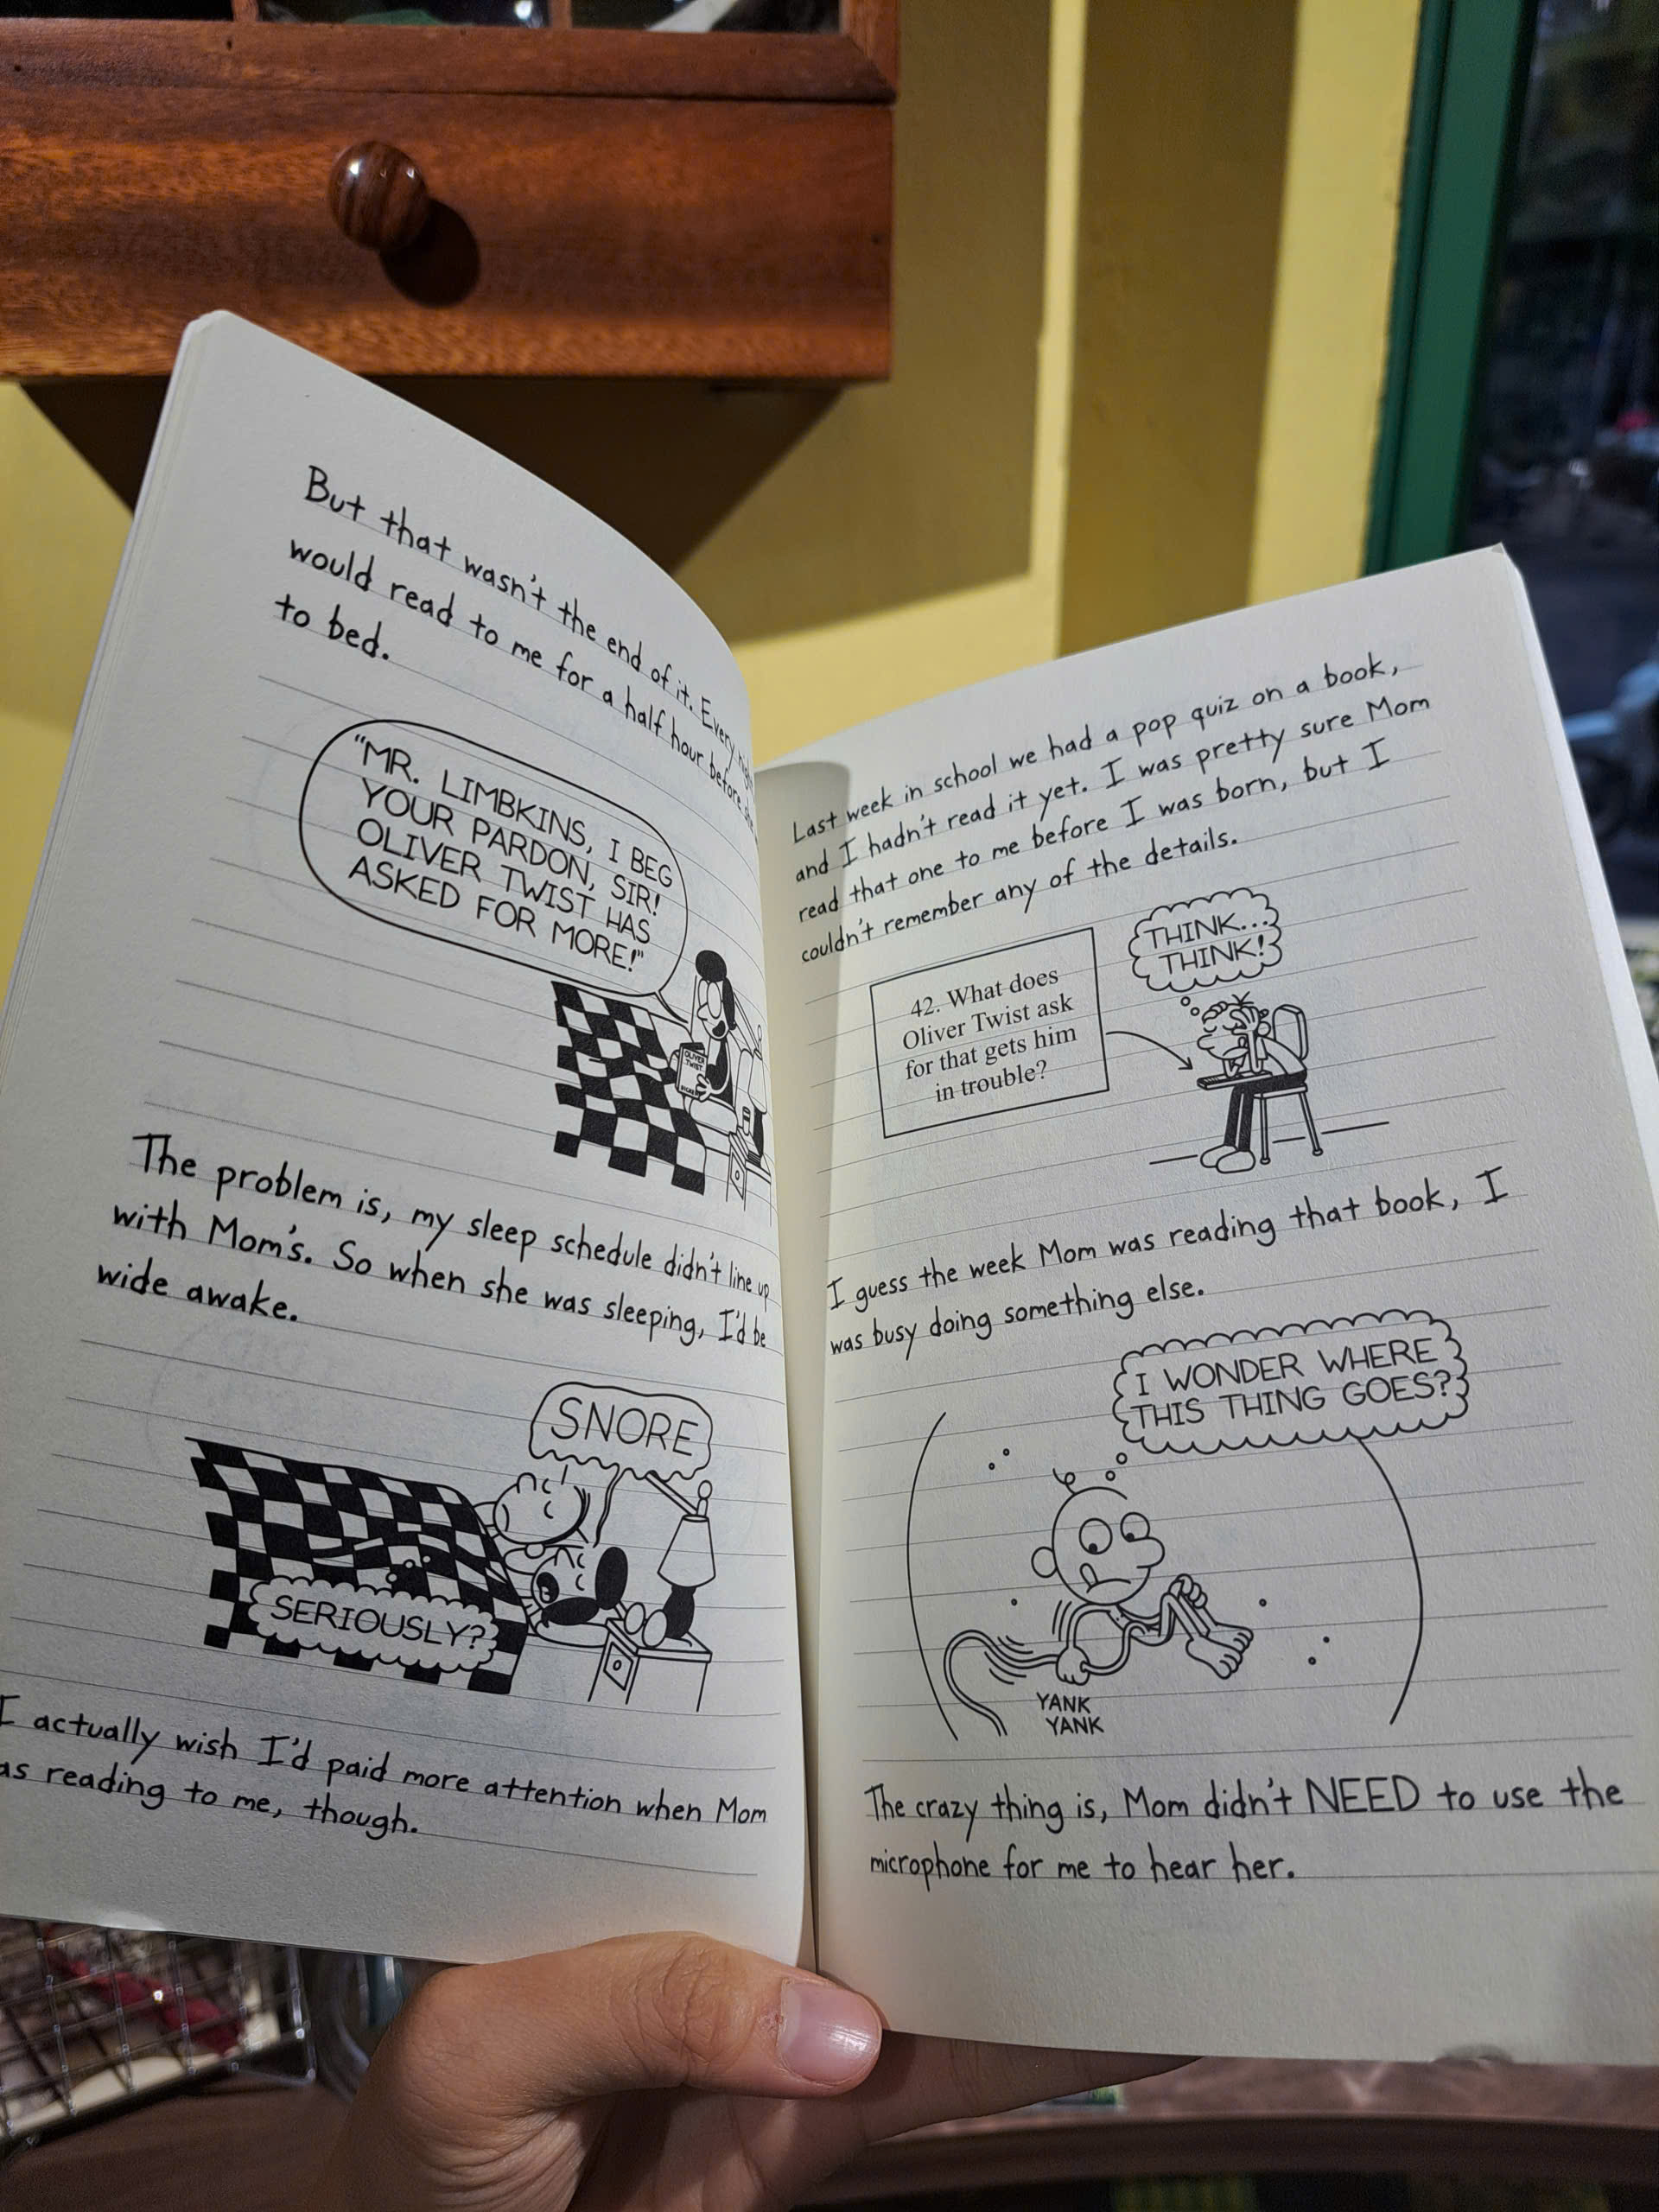 But that wasn't the end of it. Every
would read to me for a half hour before she
to bed.
"MR. LIMBKINS, I BEG
YOUR PARDON, SIR!
OLIVER TWIST HAS
ASKED FOR MORE!"
OLIVER
TWIST
The problem is, my sleep schedule didn't line up
with Mom's. So when she was sleeping, I'd be
wide awake.
SNORE
SERIOUSLY?
I actually wish I'd paid more attention when Mom
as reading to me, though.
Last week in school we had a pop quiz on a book,
and I hadn't read it yet. I was pretty sure Mom
read that one to me before I was born, but I
couldn't remember any of the details.
THINK...
THINK!
42. What does
Oliver Twist ask
for that gets him
in trouble?
I guess the week Mom was reading that book, I
was busy doing something else.
I WONDER WHERE
THIS THING GOES?
YANK
YANK
The crazy thing is, Mom didn't NEED to use the
microphone for me to hear her.